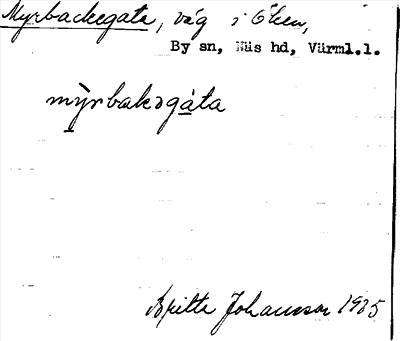 Myrbackegata, väg i Öken,
By sn, Näs hd, Värml.l.
mỳrbakəgàta
Britta Johansson 1985